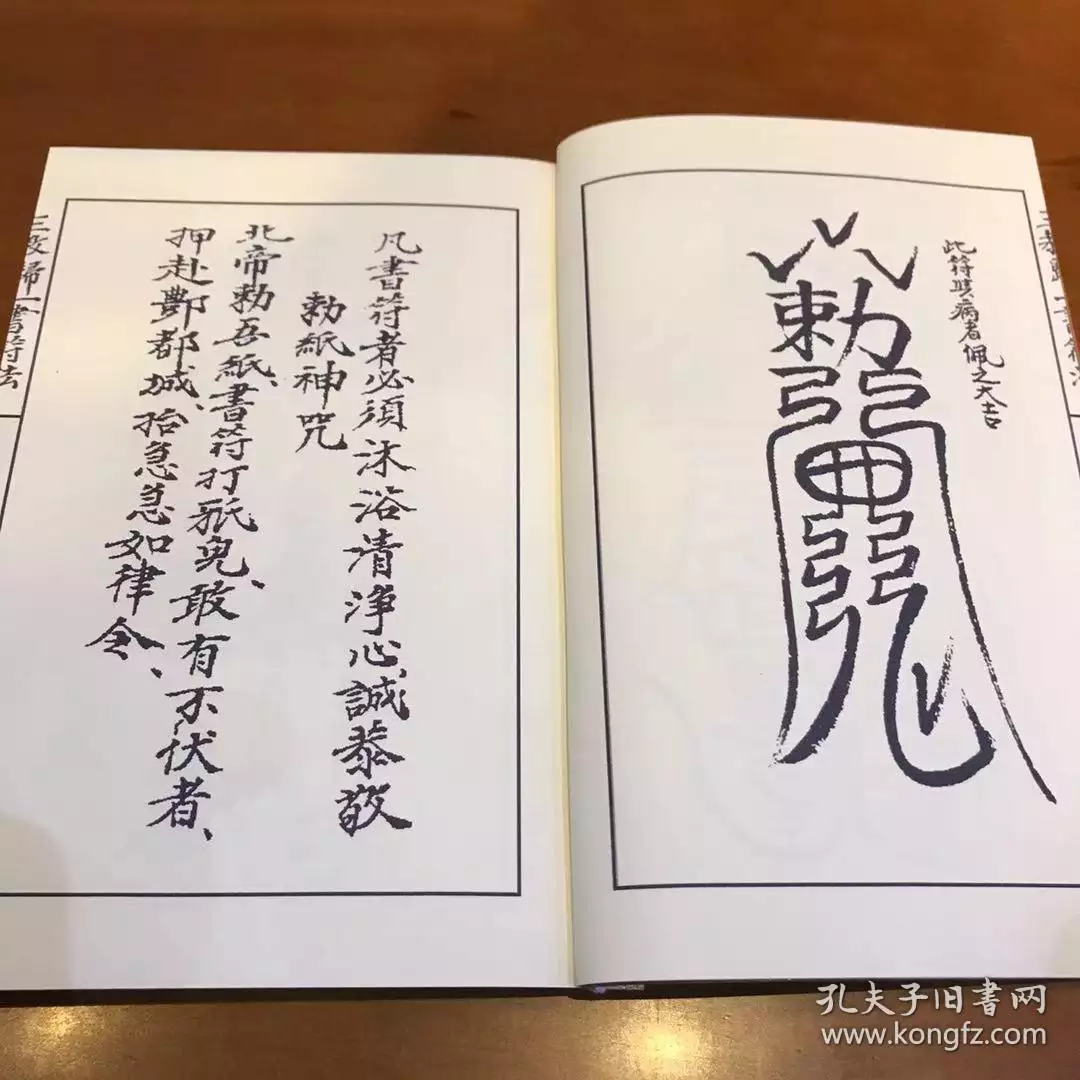 此符與病者佩之大吉
勅
三教歸一書符法
凡書符者必須沐浴清淨心誠恭敬
勅紙神咒
北帝勅吾紙、書符打邪鬼、敢有不伏者、
押赴酆都城、抬急急如律令、
三教歸一書符法
孔夫子旧書网
www.kongfz.com